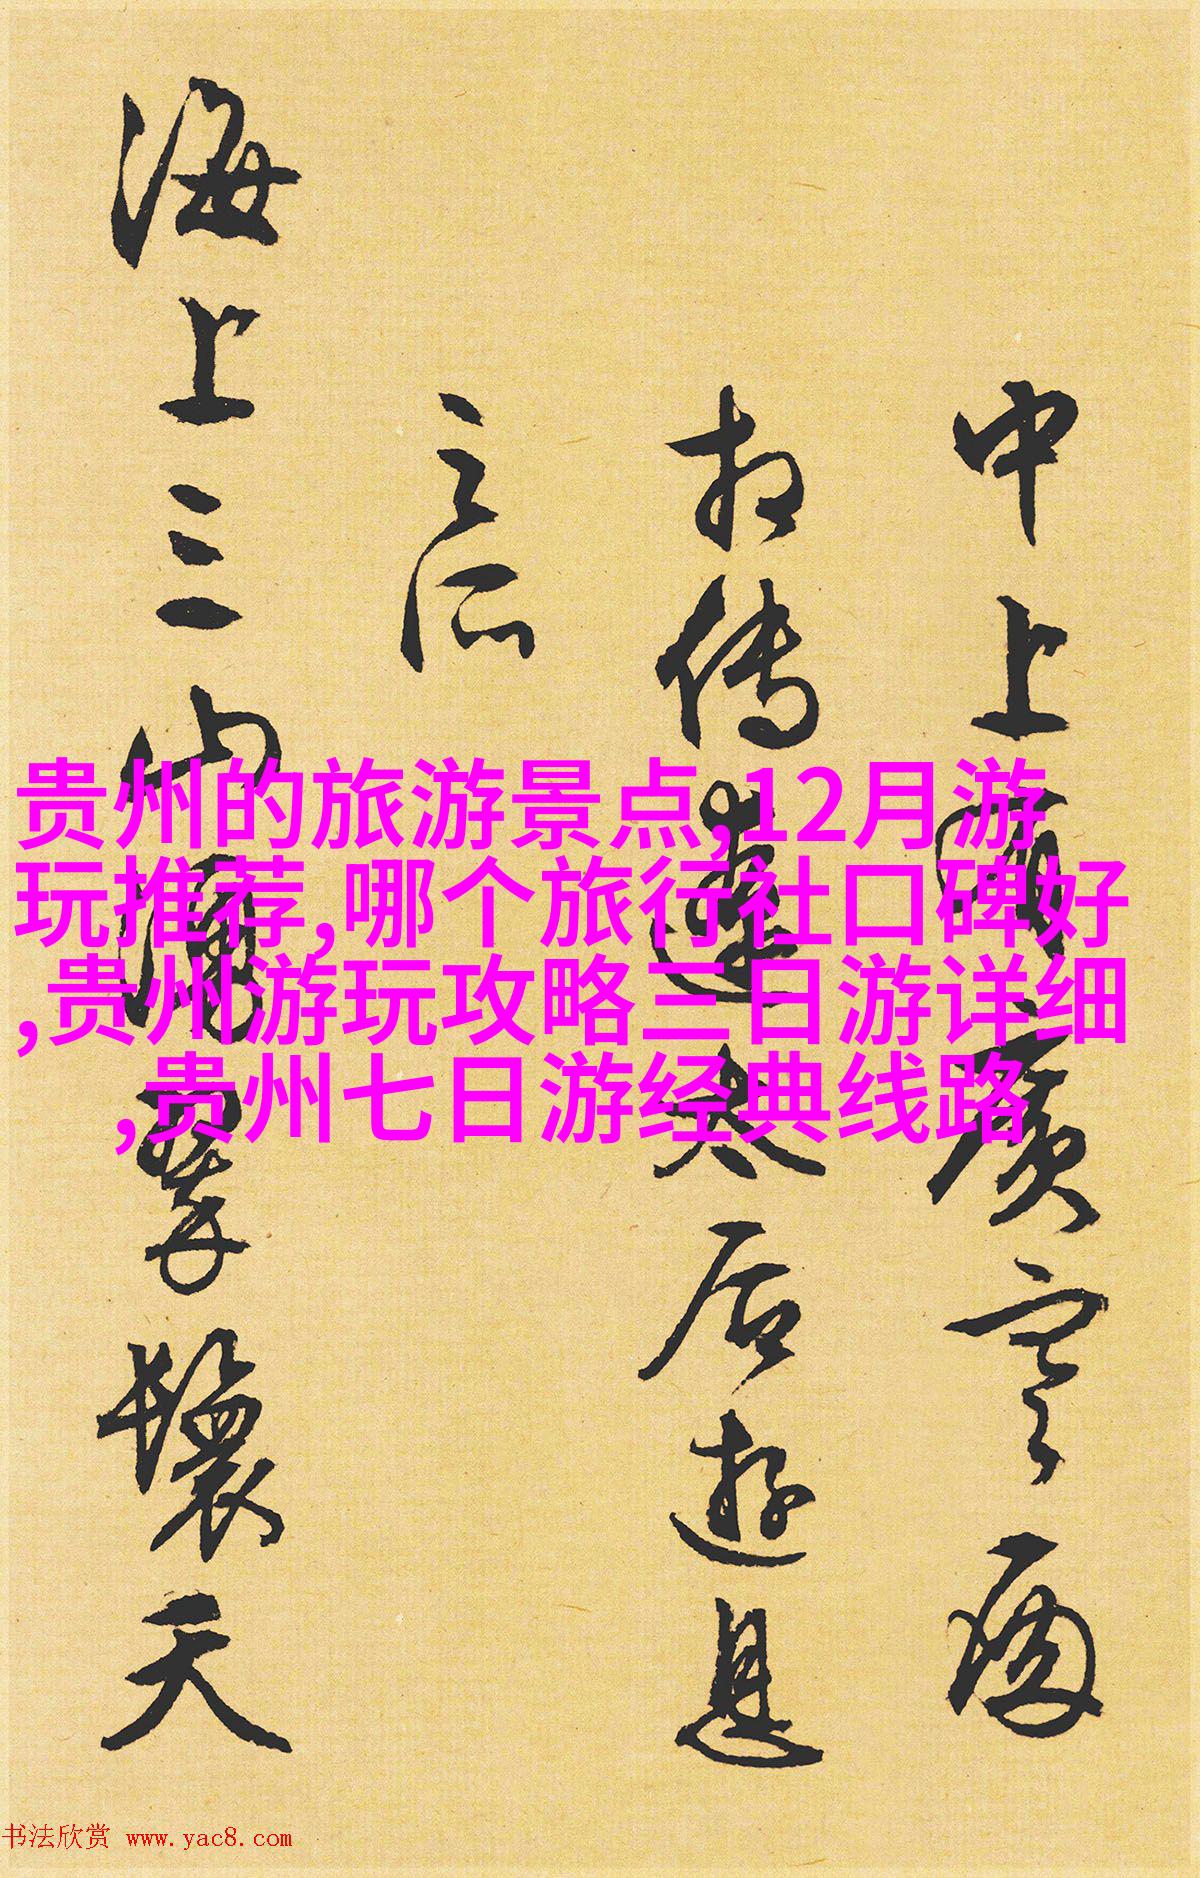 中上有廣寒
相傳遼太后遊息
之所
海上三山湧翠鬟天
贵州的旅游景点,12月游
玩推荐,哪个旅行社口碑好
,贵州游玩攻略三日游详细
,贵州七日游经典线路
书法欣赏 www.yac8.com